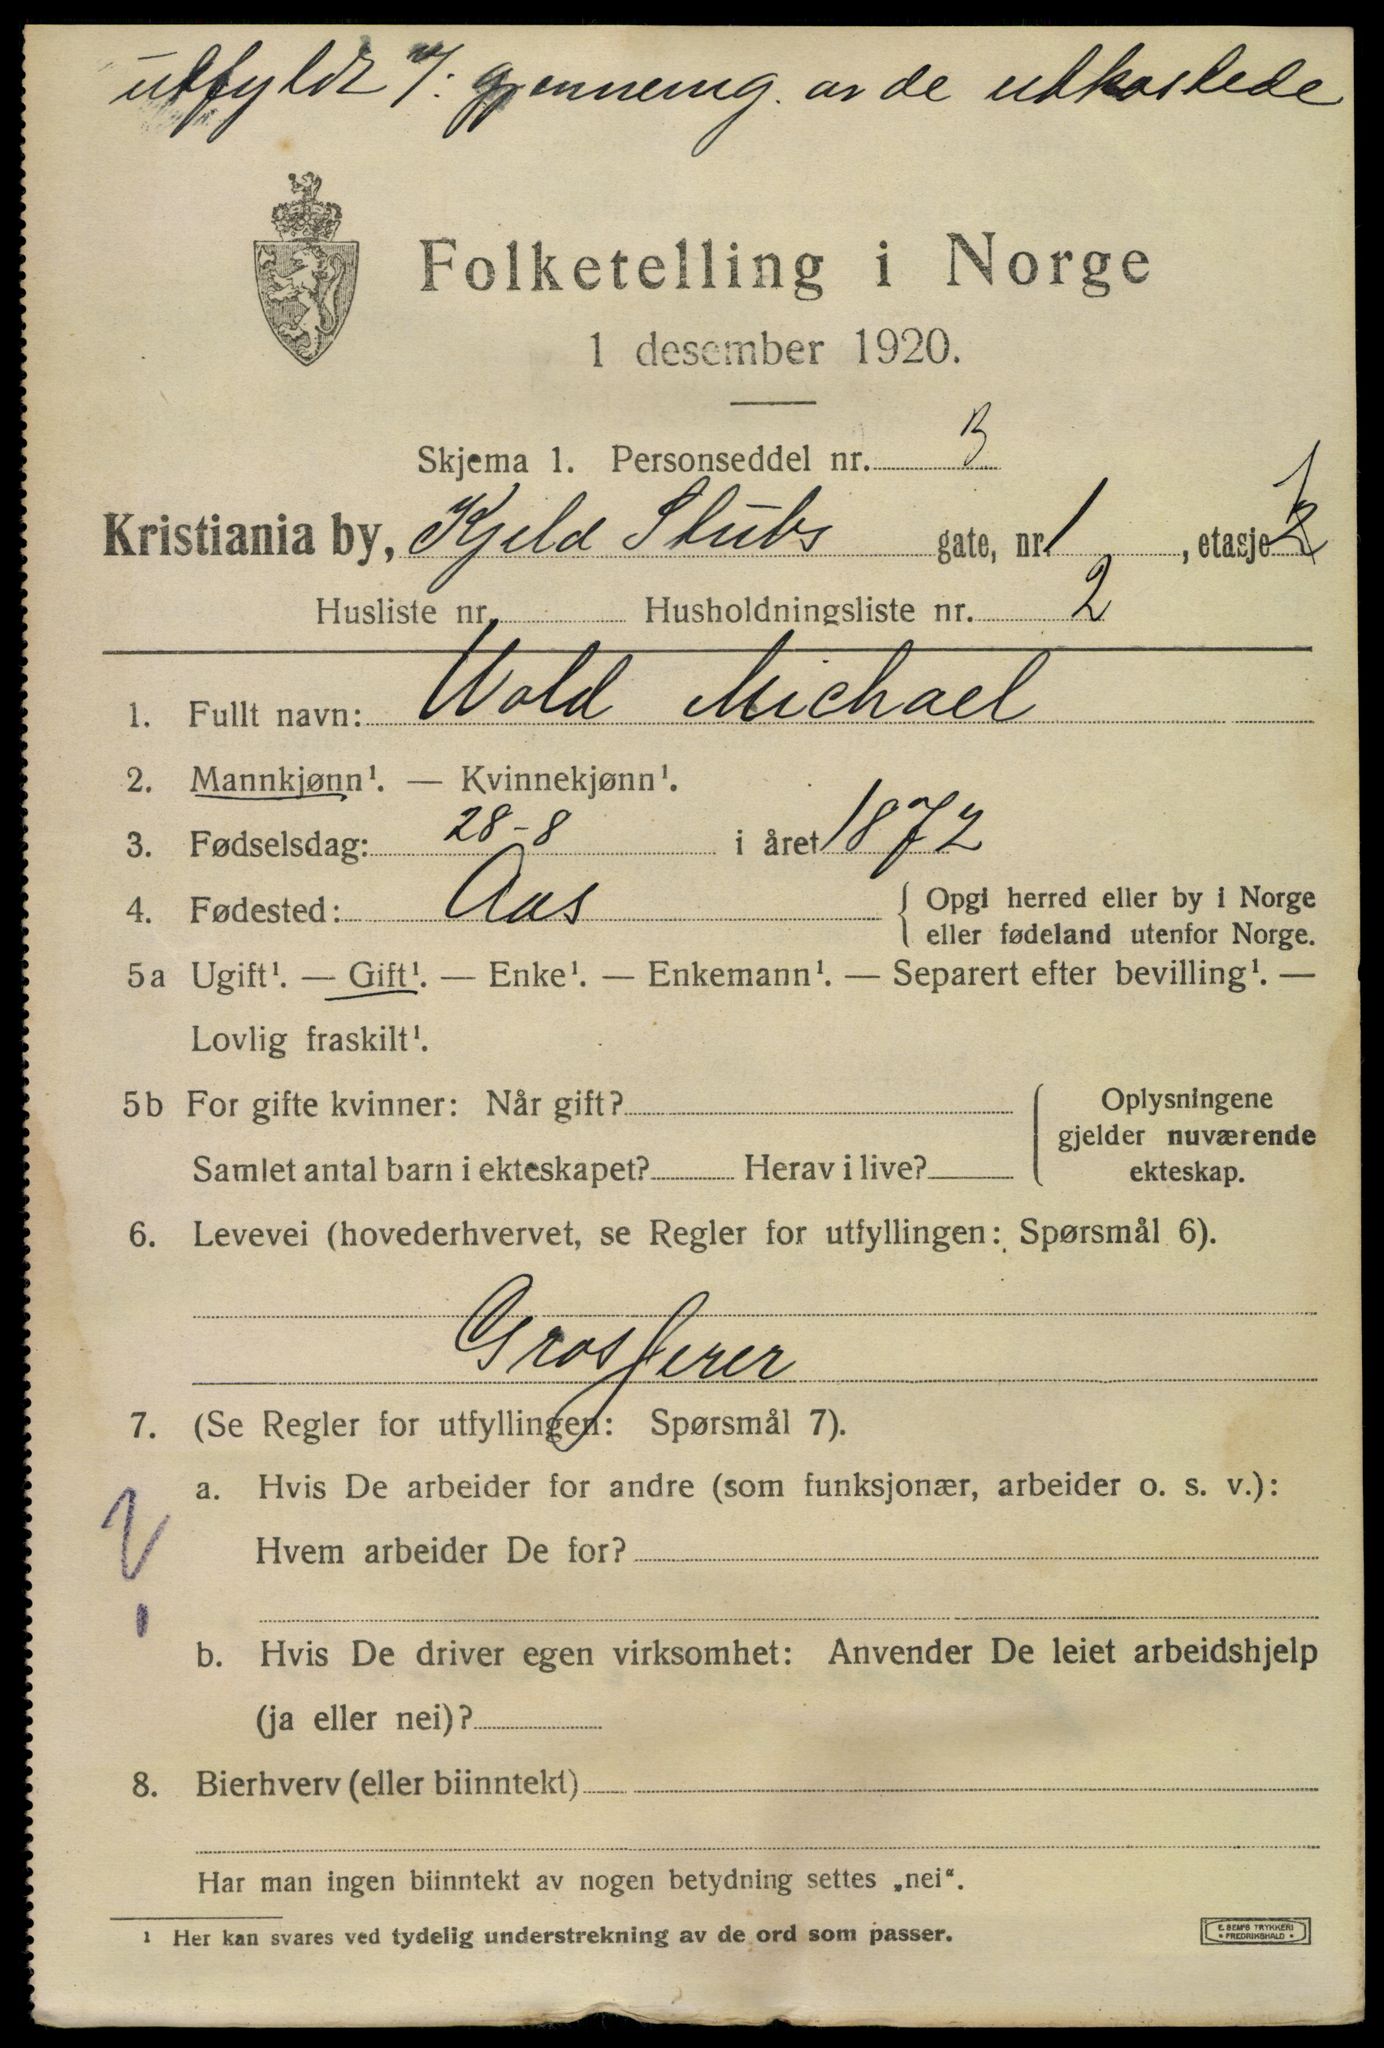 utfyldt v/: gjennemg. av de utkastede
Folketelling i Norge
1 desember 1920.
Skjema 1. Personseddel nr. 3
Kristiania by, Kjeld Stubs gate, nr. 1, etasje
Husliste nr. Husholdningsliste nr. 2
1. Fullt navn: Wold Michael
2. Mannkjønn¹. — Kvinnekjønn¹.
3. Fødselsdag: 28-8 i året 1872
4. Fødested: Aas { Opgi herred eller by i Norge
eller fødeland utenfor Norge.
5a Ugift¹. — Gift¹. — Enke¹. — Enkemann¹. — Separert efter bevilling¹. —
Lovlig fraskilt¹.
5b For gifte kvinner: Når gift? Oplysningene
gjelder nuværende
Samlet antal barn i ekteskapet? Herav i live? ekteskap.
6. Levevei (hovederhvervet, se Regler for utfyllingen: Spørsmål 6).
Grosserer
7. (Se Regler for utfyllingen: Spørsmål 7).
a. Hvis De arbeider for andre (som funksjonær, arbeider o. s. v.):
Hvem arbeider De for?
b. Hvis De driver egen virksomhet: Anvender De leiet arbeidshjelp
(ja eller nei)?
8. Bierhverv (eller biinntekt)
Har man ingen biinntekt av nogen betydning settes „nei“.
¹ Her kan svares ved tydelig understrekning av de ord som passer.
E. SEM'S TRYKKERI
• FREDRIKSHALD •